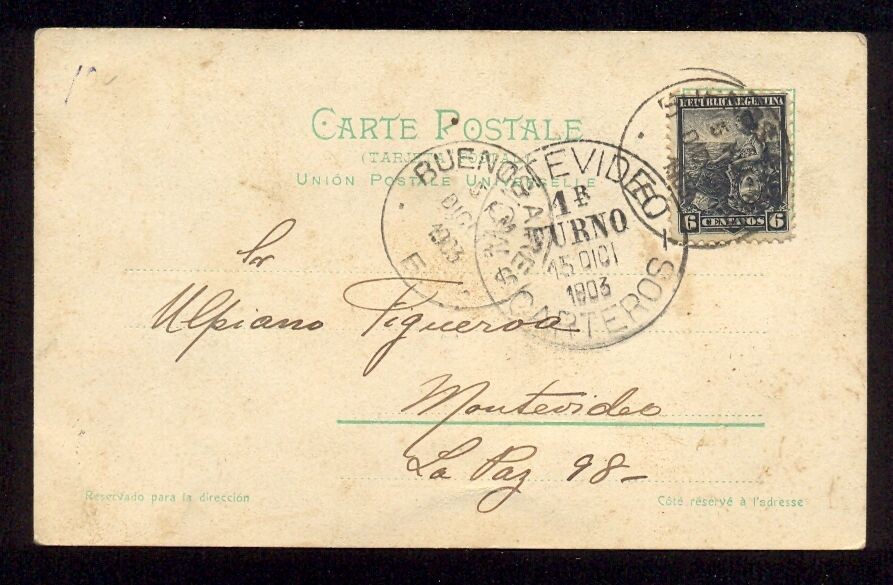 CARTE POSTALE
(TARJETA POSTAL)
UNIÓN POSTALE UNIVERSELLE
REPUBLICA ARGENTINA
6 CENTAVOS 6
BUENOS AIRES
DIC
1903
MONTEVIDEO
1R
TURNO
15 DICI
1903
CARTEROS
Ulpiano Figueroa
Montevideo
La Paz 98-
Reservado para la dirección
Côté réservé à l'adresse